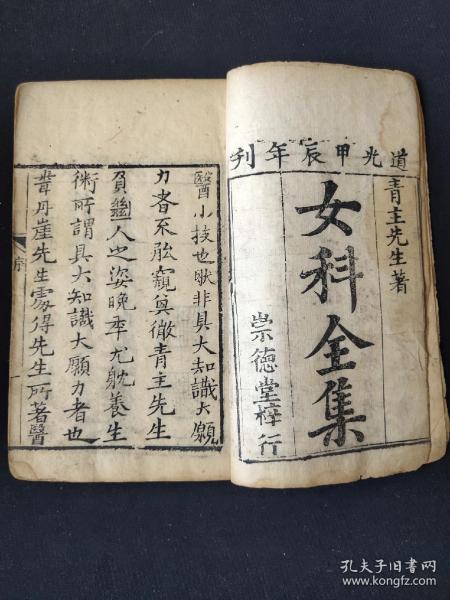 道光甲辰年刊
青主先生著
女科全集
崇德堂梓行
醫小技也欤非具大知識大願
力者不胀窺其微青主先生
負幽人之姿晚年尤躭養生
術所謂具大知識大願力者也
昔丹崖先生處得先生所著醫
序
孔夫子旧书网
www.kongfz.com